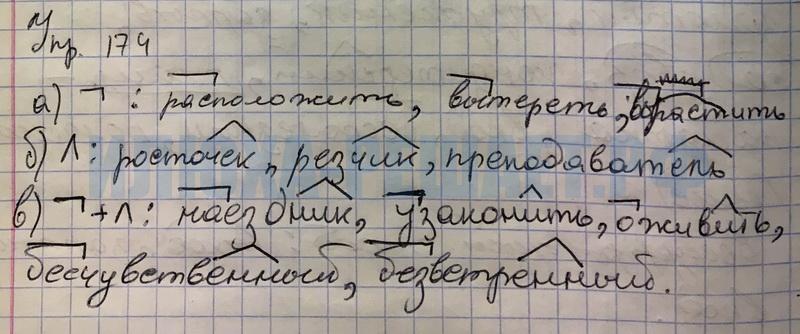 Упр. 174
а) ¬ : расположить, вытереть, вырастить
б) Λ : росточек, резчик, преподаватель
в) ¬ + Λ : наездник, узаконить, оживить,
бесчувственный, безветренный.